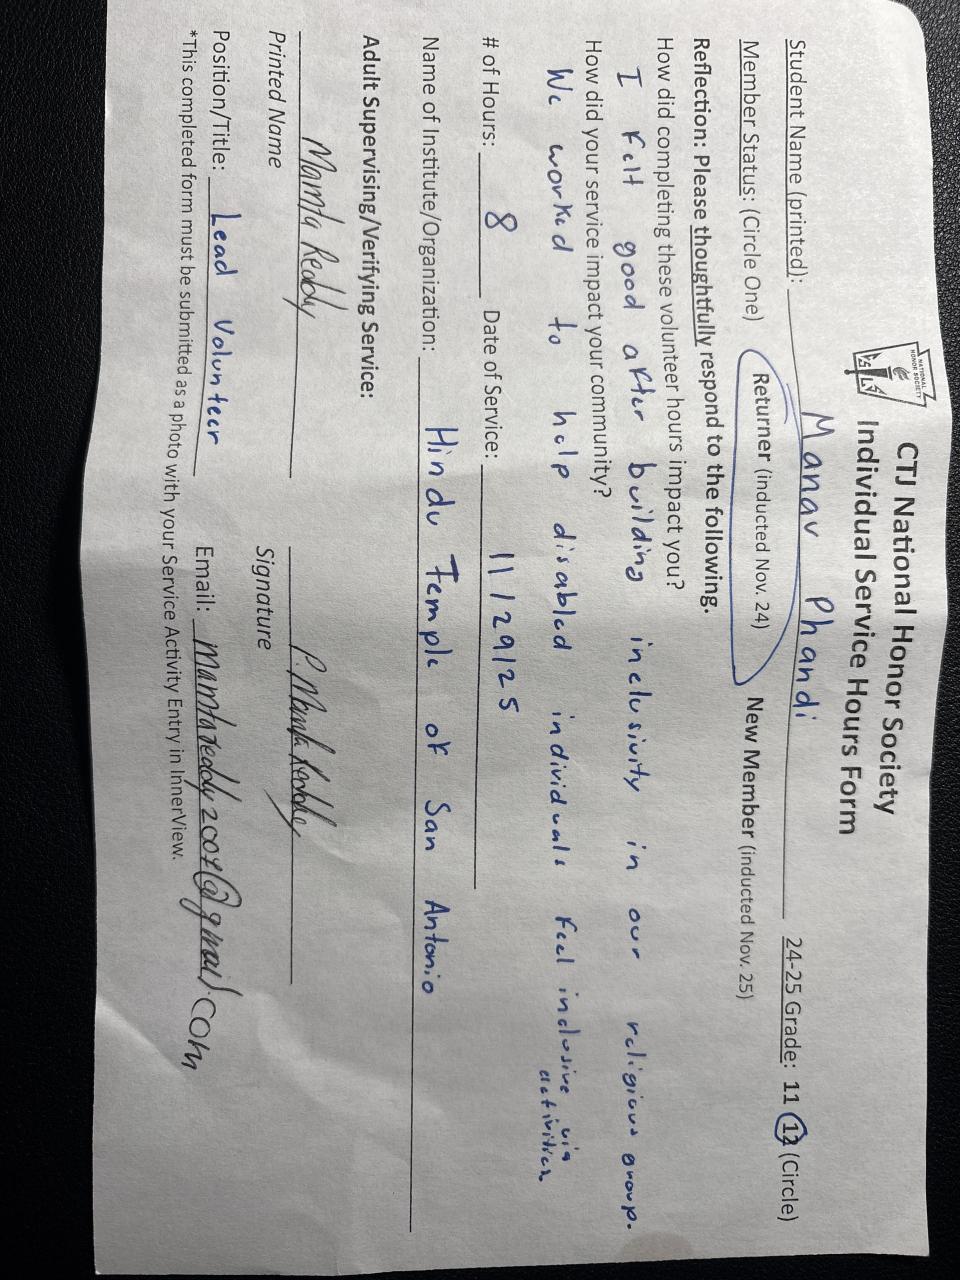 NATIONAL
HONOR SOCIETY
CTJ National Honor Society
Individual Service Hours Form
Student Name (printted): Manav Phandi 24-25 Grade: 11 12 (Circle)
Member Status: (Circle One) Returner (inducted Nov. 24) New Member (inducted Nov. 25)
Reflection: Please thoughtfully respond to the following.
How did completing these volunteer hours impact you?
I felt good after building inclusivity in our religious group.
How did your service impact your community?
We worked to help disabled individuals feel inclusive via
activities
# of Hours: 8 Date of Service: 11/29/25
Name of Institute/Organization: Hindu Temple of San Antonio
Adult Supervising/Verifying Service:
Mamta Reddy P. Mamta Reddy
Printed Name Signature
Position/Title: Lead Volunteer Email: mamtareddy2007@gmail.com
*This completed form must be submitted as a photo with your Service Activity Entry in InnerView.